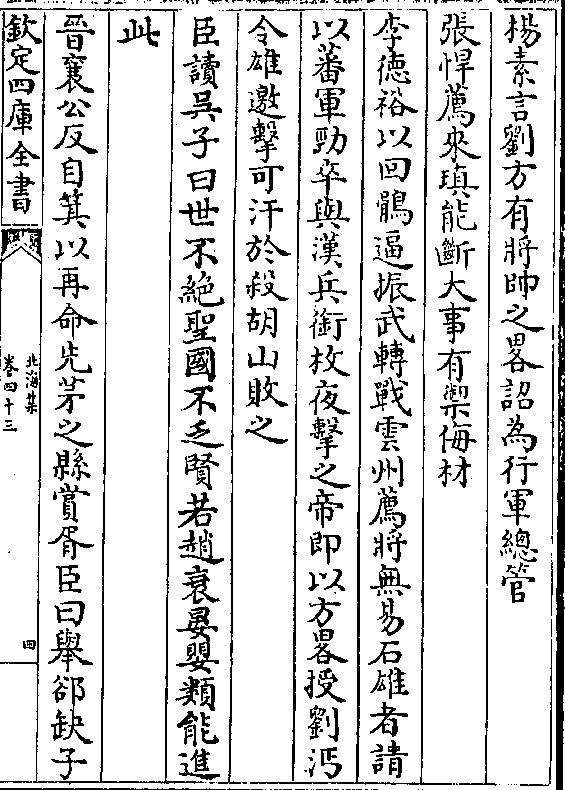 楊素言劉方有將帥之畧詔為行軍總管
張悍薦來瑱能斷大事有禦侮材
李德裕以回鶻逼振武轉戰雲州薦將無易石雄者請
以蕃軍勁卒與漢兵銜枚夜擊之帝即以方畧授劉沔
令雄邀擊可汗於殺胡山敗之
臣讀吳子曰世不絕聖國不乏賢若趙衰晏嬰類能進
此
晉襄公反自箕以再命先茅之縣賞胥臣曰舉郤缺子
欽定四庫全書
北海集
卷四十三
四